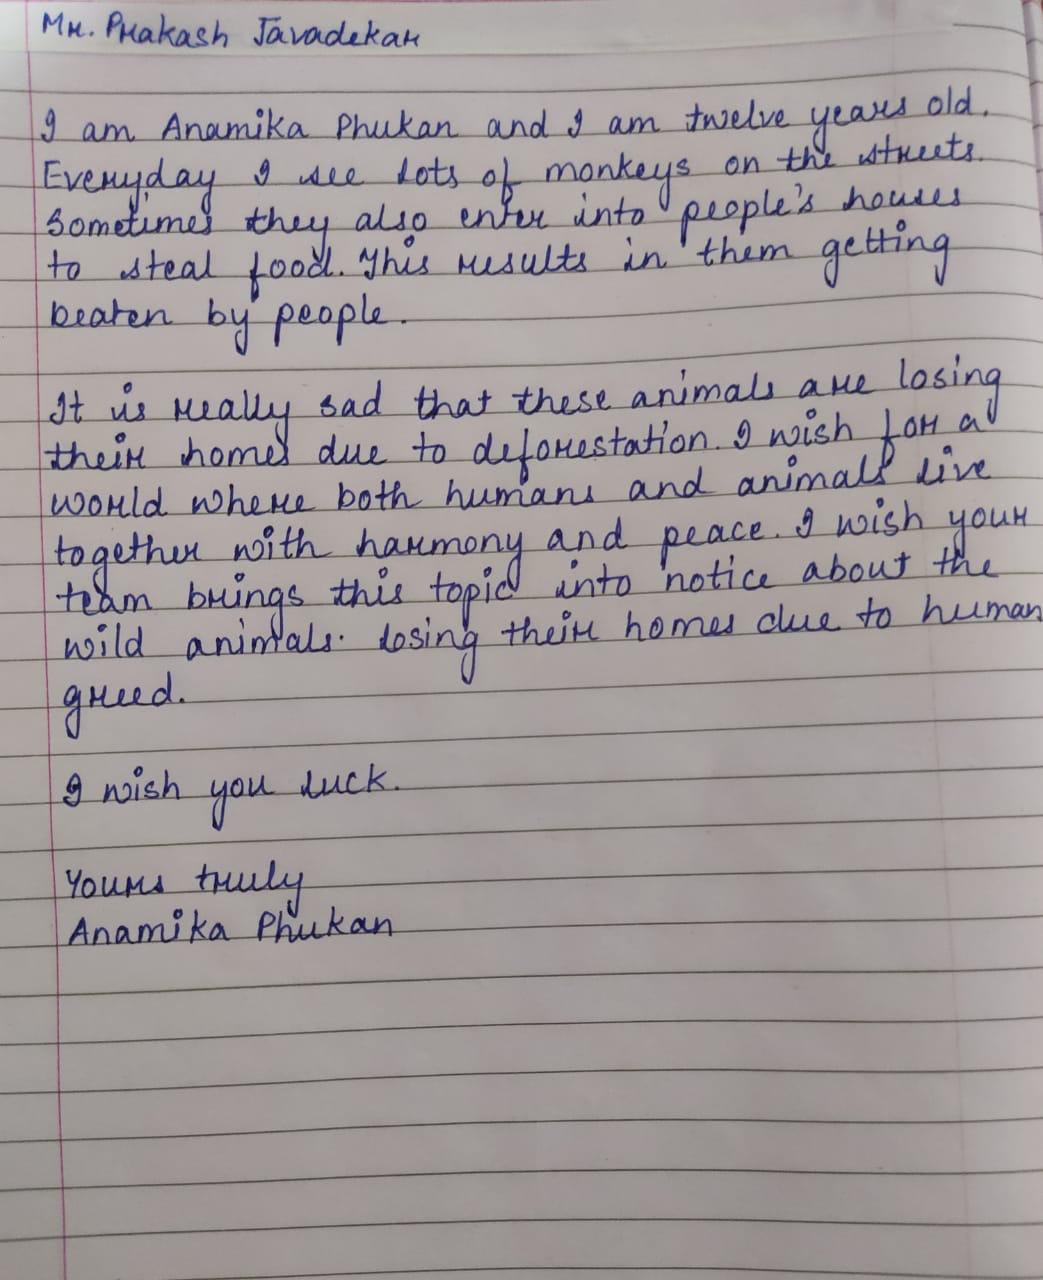 Mr. Prakash Javadekar
I am Anamika Phukan and I am twelve years old.
Everyday I see lots of monkeys on the streets.
Sometimes they also enter into people's houses
to steal food. This results in them getting
beaten by people.
It is really sad that these animals are losing
their homes due to deforestation. I wish for a
world where both humans and animals live
together with harmony and peace. I wish your
team brings this topic into notice about the
wild animals. losing their homes due to human
greed.
I wish you luck.
Yours truly
Anamika Phukan